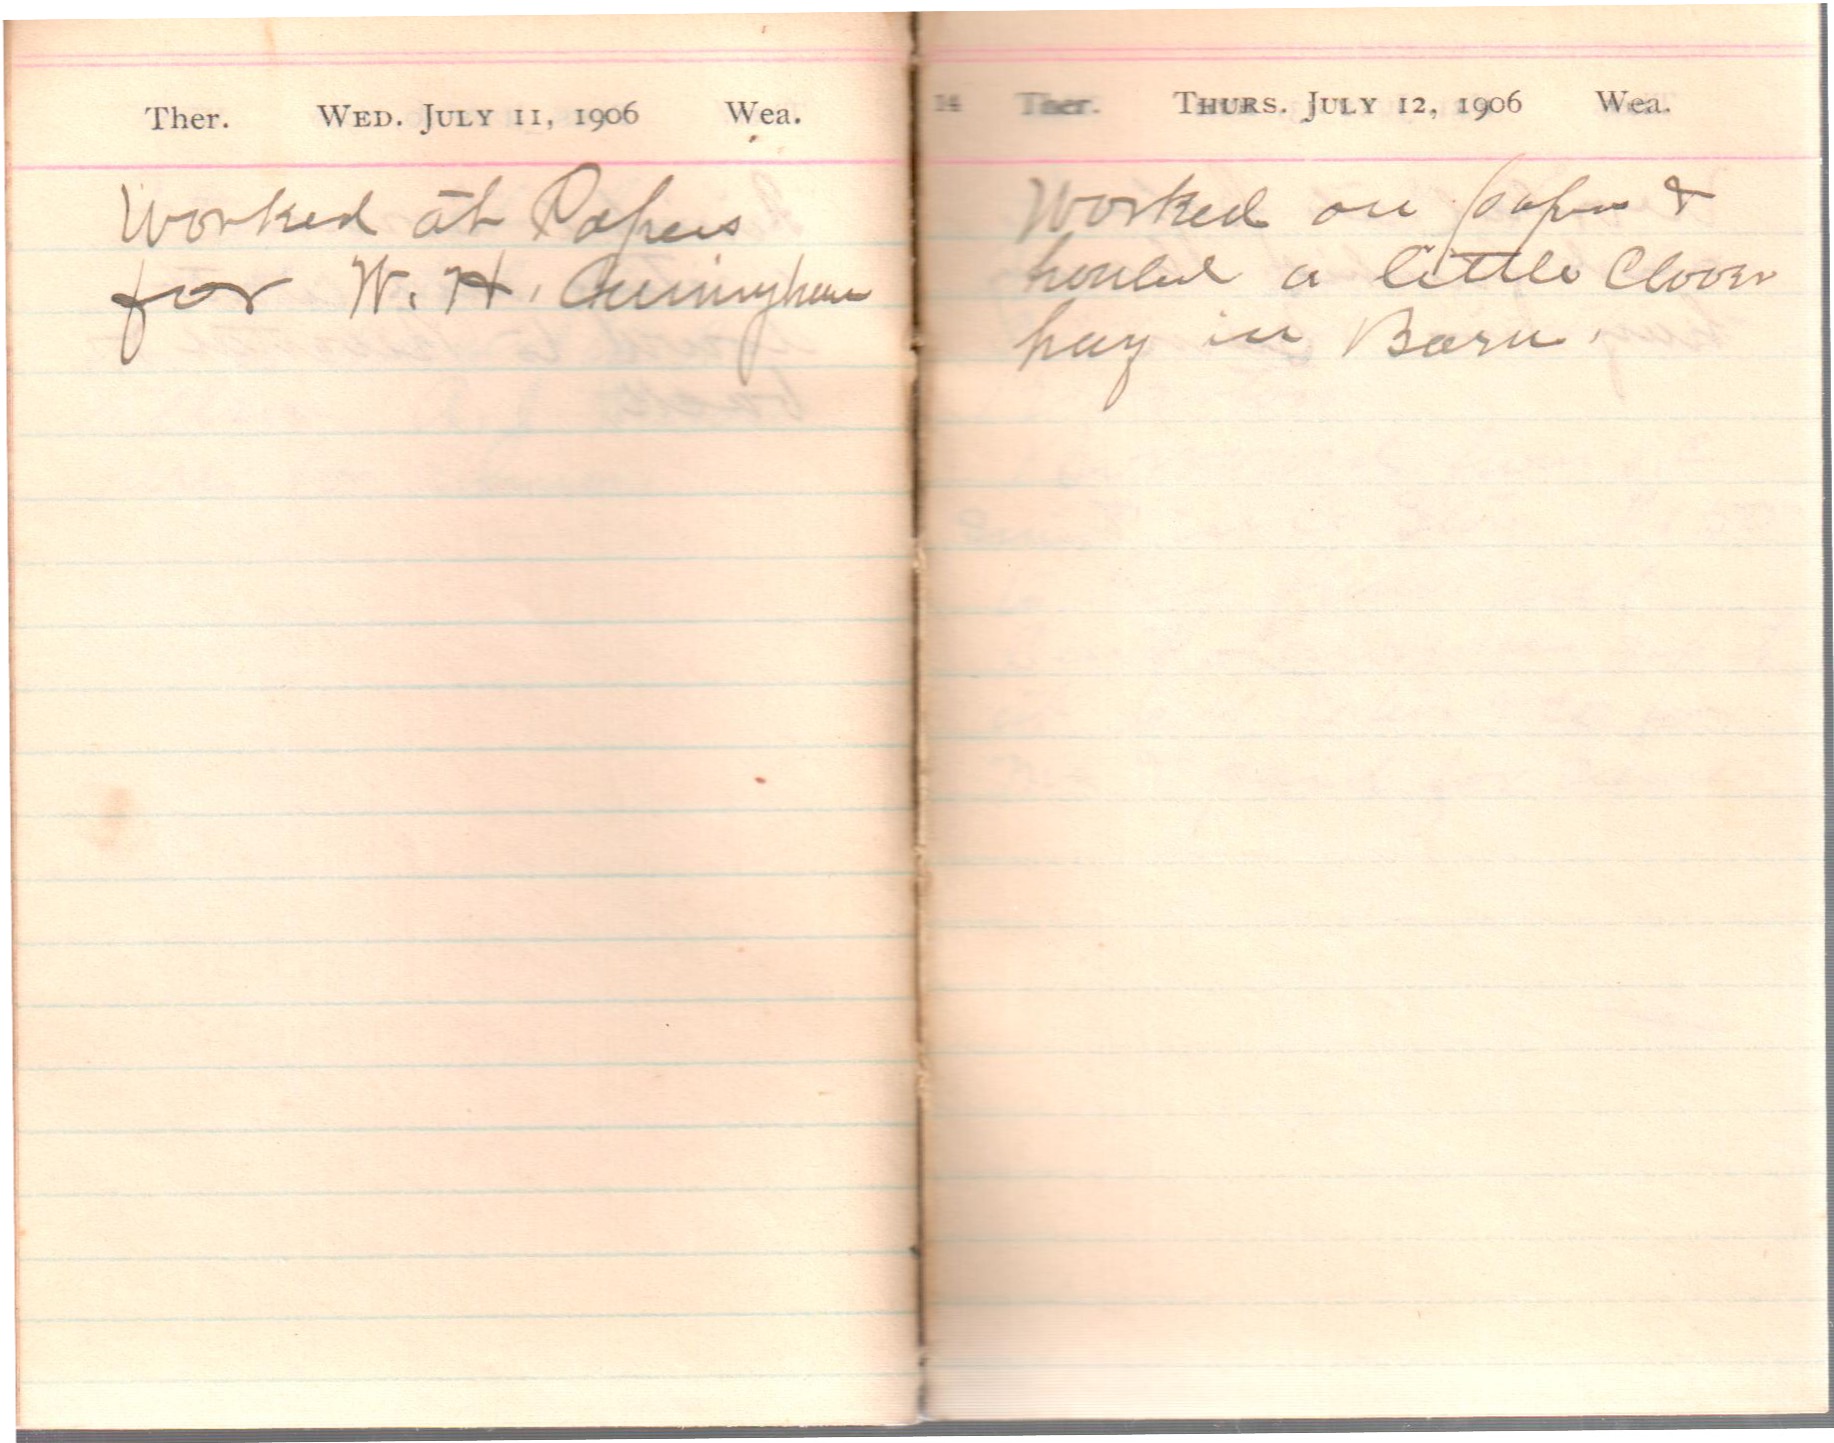 Ther. WED. JULY 11, 1906 Wea.
Worked at Papers
for W. H. Cuningham
14 Ther. THURS. JULY 12, 1906 Wea.
Worked on papers &
houled a little Clover
hay in Barn.